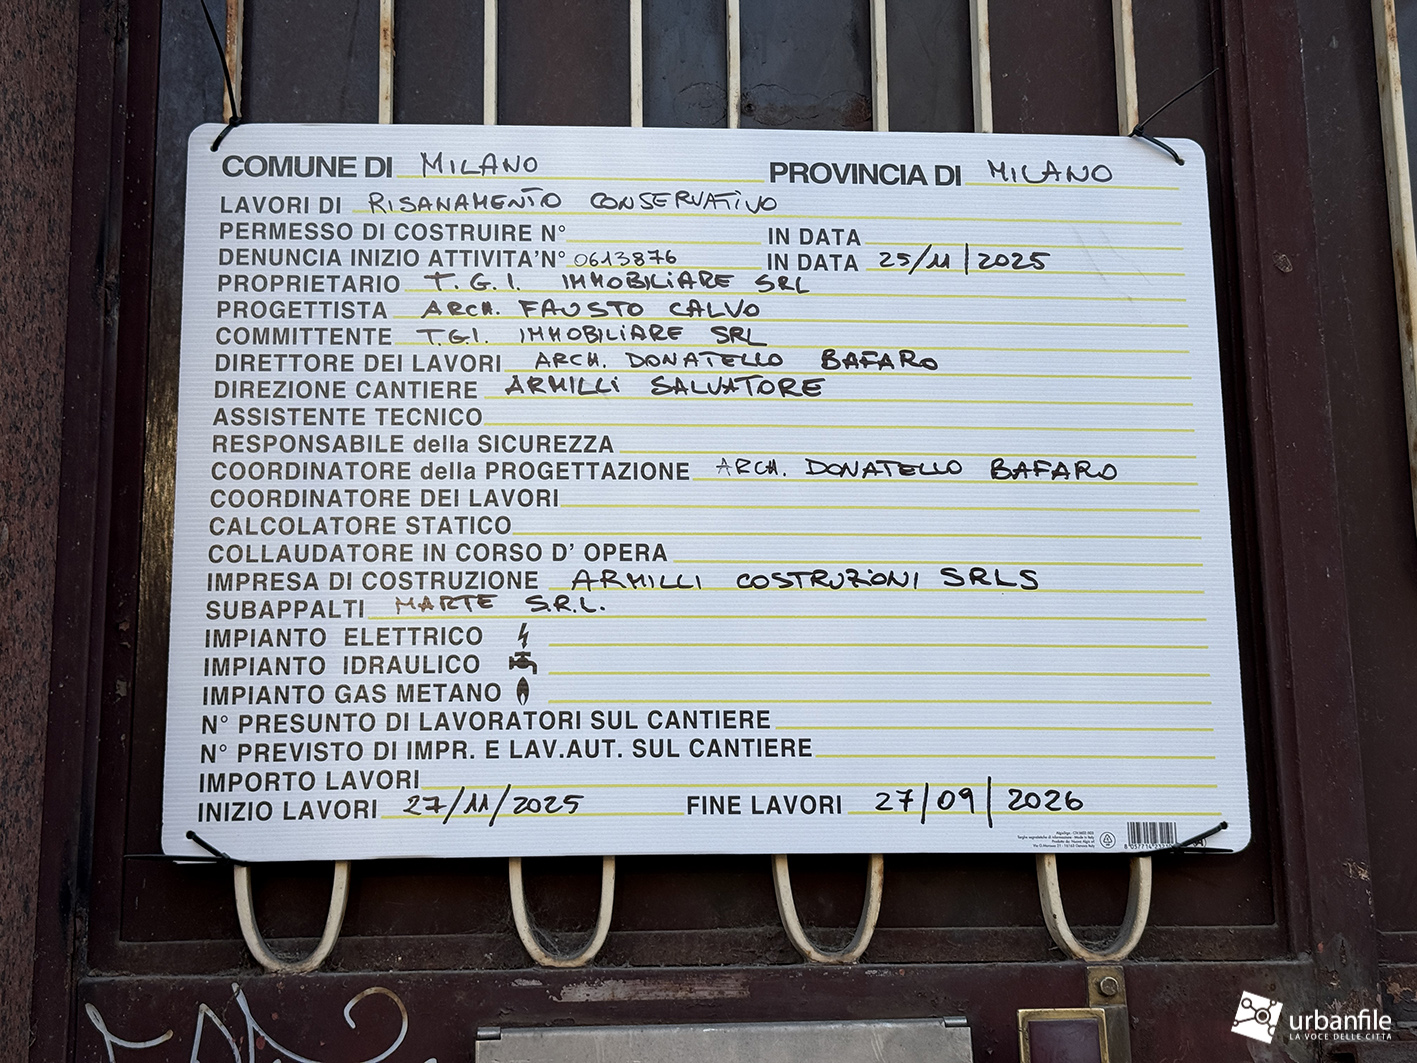 COMUNE DI MILANO PROVINCIA DI MILANO
LAVORI DI RISANAMENTO CONSERVATIVO
PERMESSO DI COSTRUIRE N° IN DATA
DENUNCIA INIZIO ATTIVITA'N° 0613876 IN DATA 25/11/2025
PROPRIETARIO T.G.I. IMMOBILIARE SRL
PROGETTISTA ARCH. FAUSTO CALVO
COMMITTENTE T.G.I. IMMOBILIARE SRL
DIRETTORE DEI LAVORI ARCH. DONATELLO BAFARO
DIREZIONE CANTIERE ARMILLI SALVATORE
ASSISTENTE TECNICO
RESPONSABILE della SICUREZZA
COORDINATORE della PROGETTAZIONE ARCH. DONATELLO BAFARO
COORDINATORE DEI LAVORI
CALCOLATORE STATICO
COLLAUDATORE IN CORSO D' OPERA
IMPRESA DI COSTRUZIONE ARMILLI COSTRUZIONI SRLS
SUBAPPALTI MARTE S.R.L.
IMPIANTO ELETTRICO
IMPIANTO IDRAULICO
IMPIANTO GAS METANO
N° PRESUNTO DI LAVORATORI SUL CANTIERE
N° PREVISTO DI IMPR. E LAV.AUT. SUL CANTIERE
IMPORTO LAVORI
INIZIO LAVORI 27/11/2025 FINE LAVORI 27/09/2026
urbanfile
LA VOCE DELLE CITTÀ